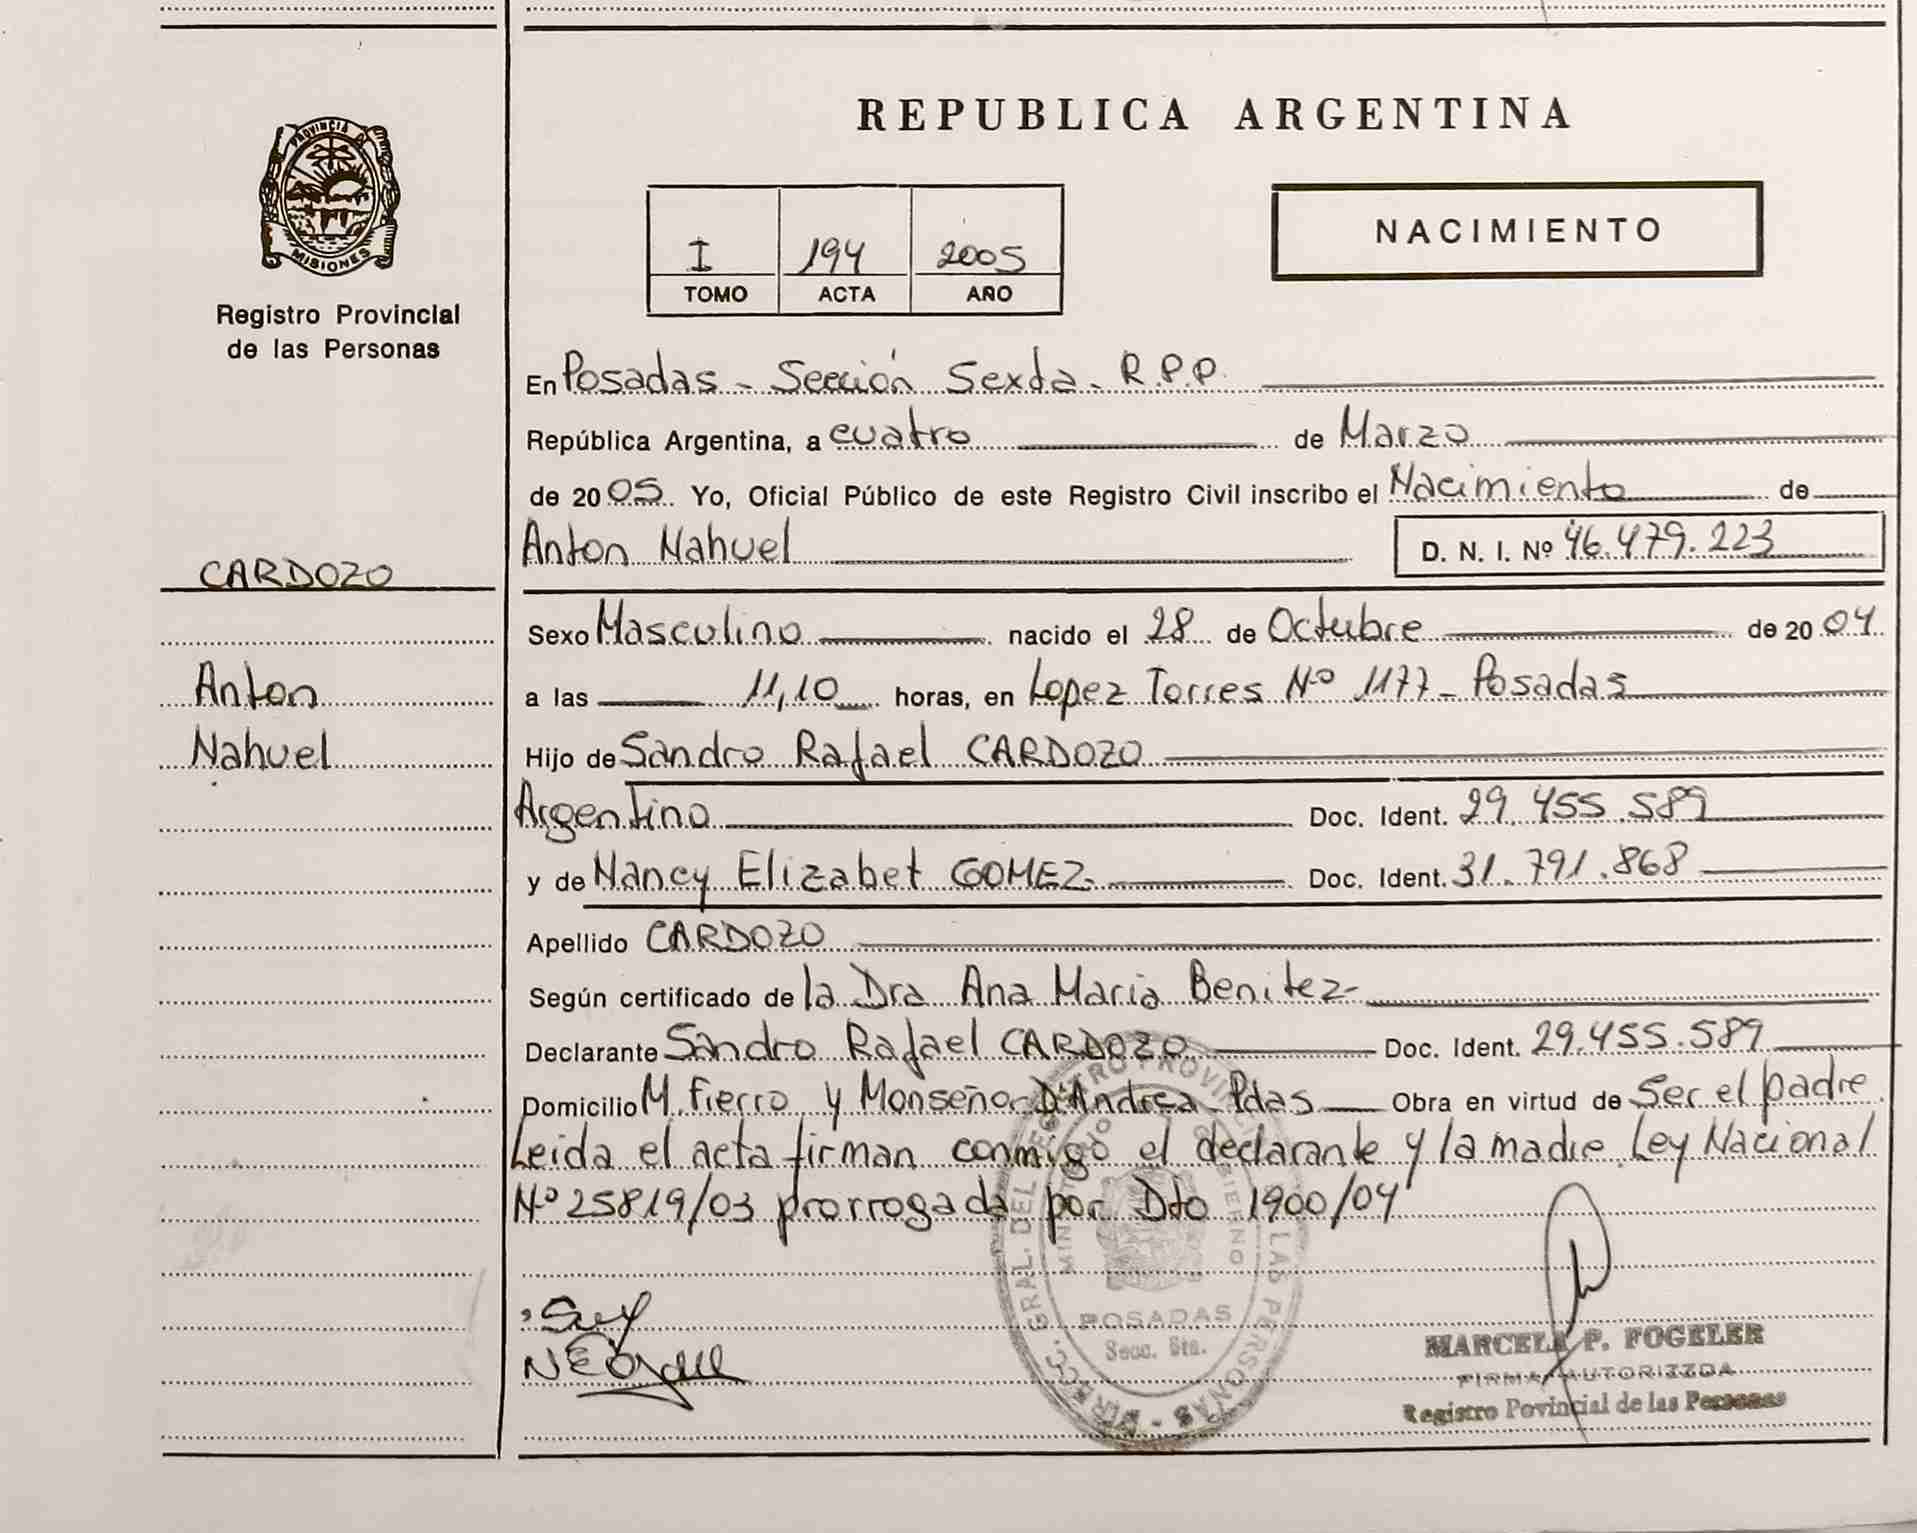 PROVINCIA DE
MISIONES
Registro Provincial
de las Personas
CARDOZO
Anton
Nahuel
REPUBLICA ARGENTINA
I 194 2005
TOMO ACTA AÑO
NACIMIENTO
En Posadas - Sección Sexta - R.P.P.
República Argentina, a cuatro de Marzo
de 2005. Yo, Oficial Público de este Registro Civil inscribo el Nacimiento de
Anton Nahuel D. N. I. Nº 46.479.223
Sexo Masculino nacido el 28 de Octubre de 2004
a las 11,10 horas, en Lopez Torres Nº 1177 - Posadas
Hijo de Sandro Rafael CARDOZO
Argentino Doc. Ident. 29.455.589
y de Nancy Elizabet GOMEZ - Doc. Ident. 31.791.868
Apellido CARDOZO
Según certificado de la Dra Ana Maria Benitez -
Declarante Sandro Rafael CARDOZO Doc. Ident. 29.455.589
Domicilio M. Fierro y Monseñor D'Andrea - Pdas Obra en virtud de Ser el padre
Leida el acta firman conmigo el declarante y la madre. Ley Nacional
Nº 25819/03 prorrogada por Dto 1900/04
DIRECC. GRAL. DEL REGISTRO PROVINCIAL DE LAS PERSONAS
MINISTERIO GOBIERNO
POSADAS
Secc. 6ta.
MARCELA P. FOGELER
FIRMA AUTORIZZDA
Registro Povincial de las Personas